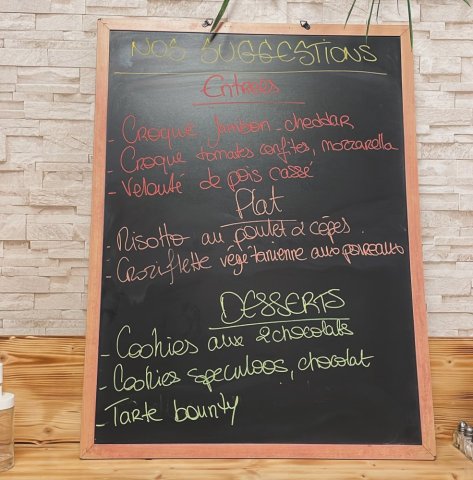 NOS SUGGESTIONS
Entrées
- Croque jambon-cheddar
- Croque tomates confites, mozzarella
- Velouté de pois cassé
Plat
- Risotto au poulet & cèpes
- Croziflette végétarienne aux poireaux
DESSERTS
- Cookies aux 2 chocolats
- Cookies speculoos, chocolat
- Tarte bounty